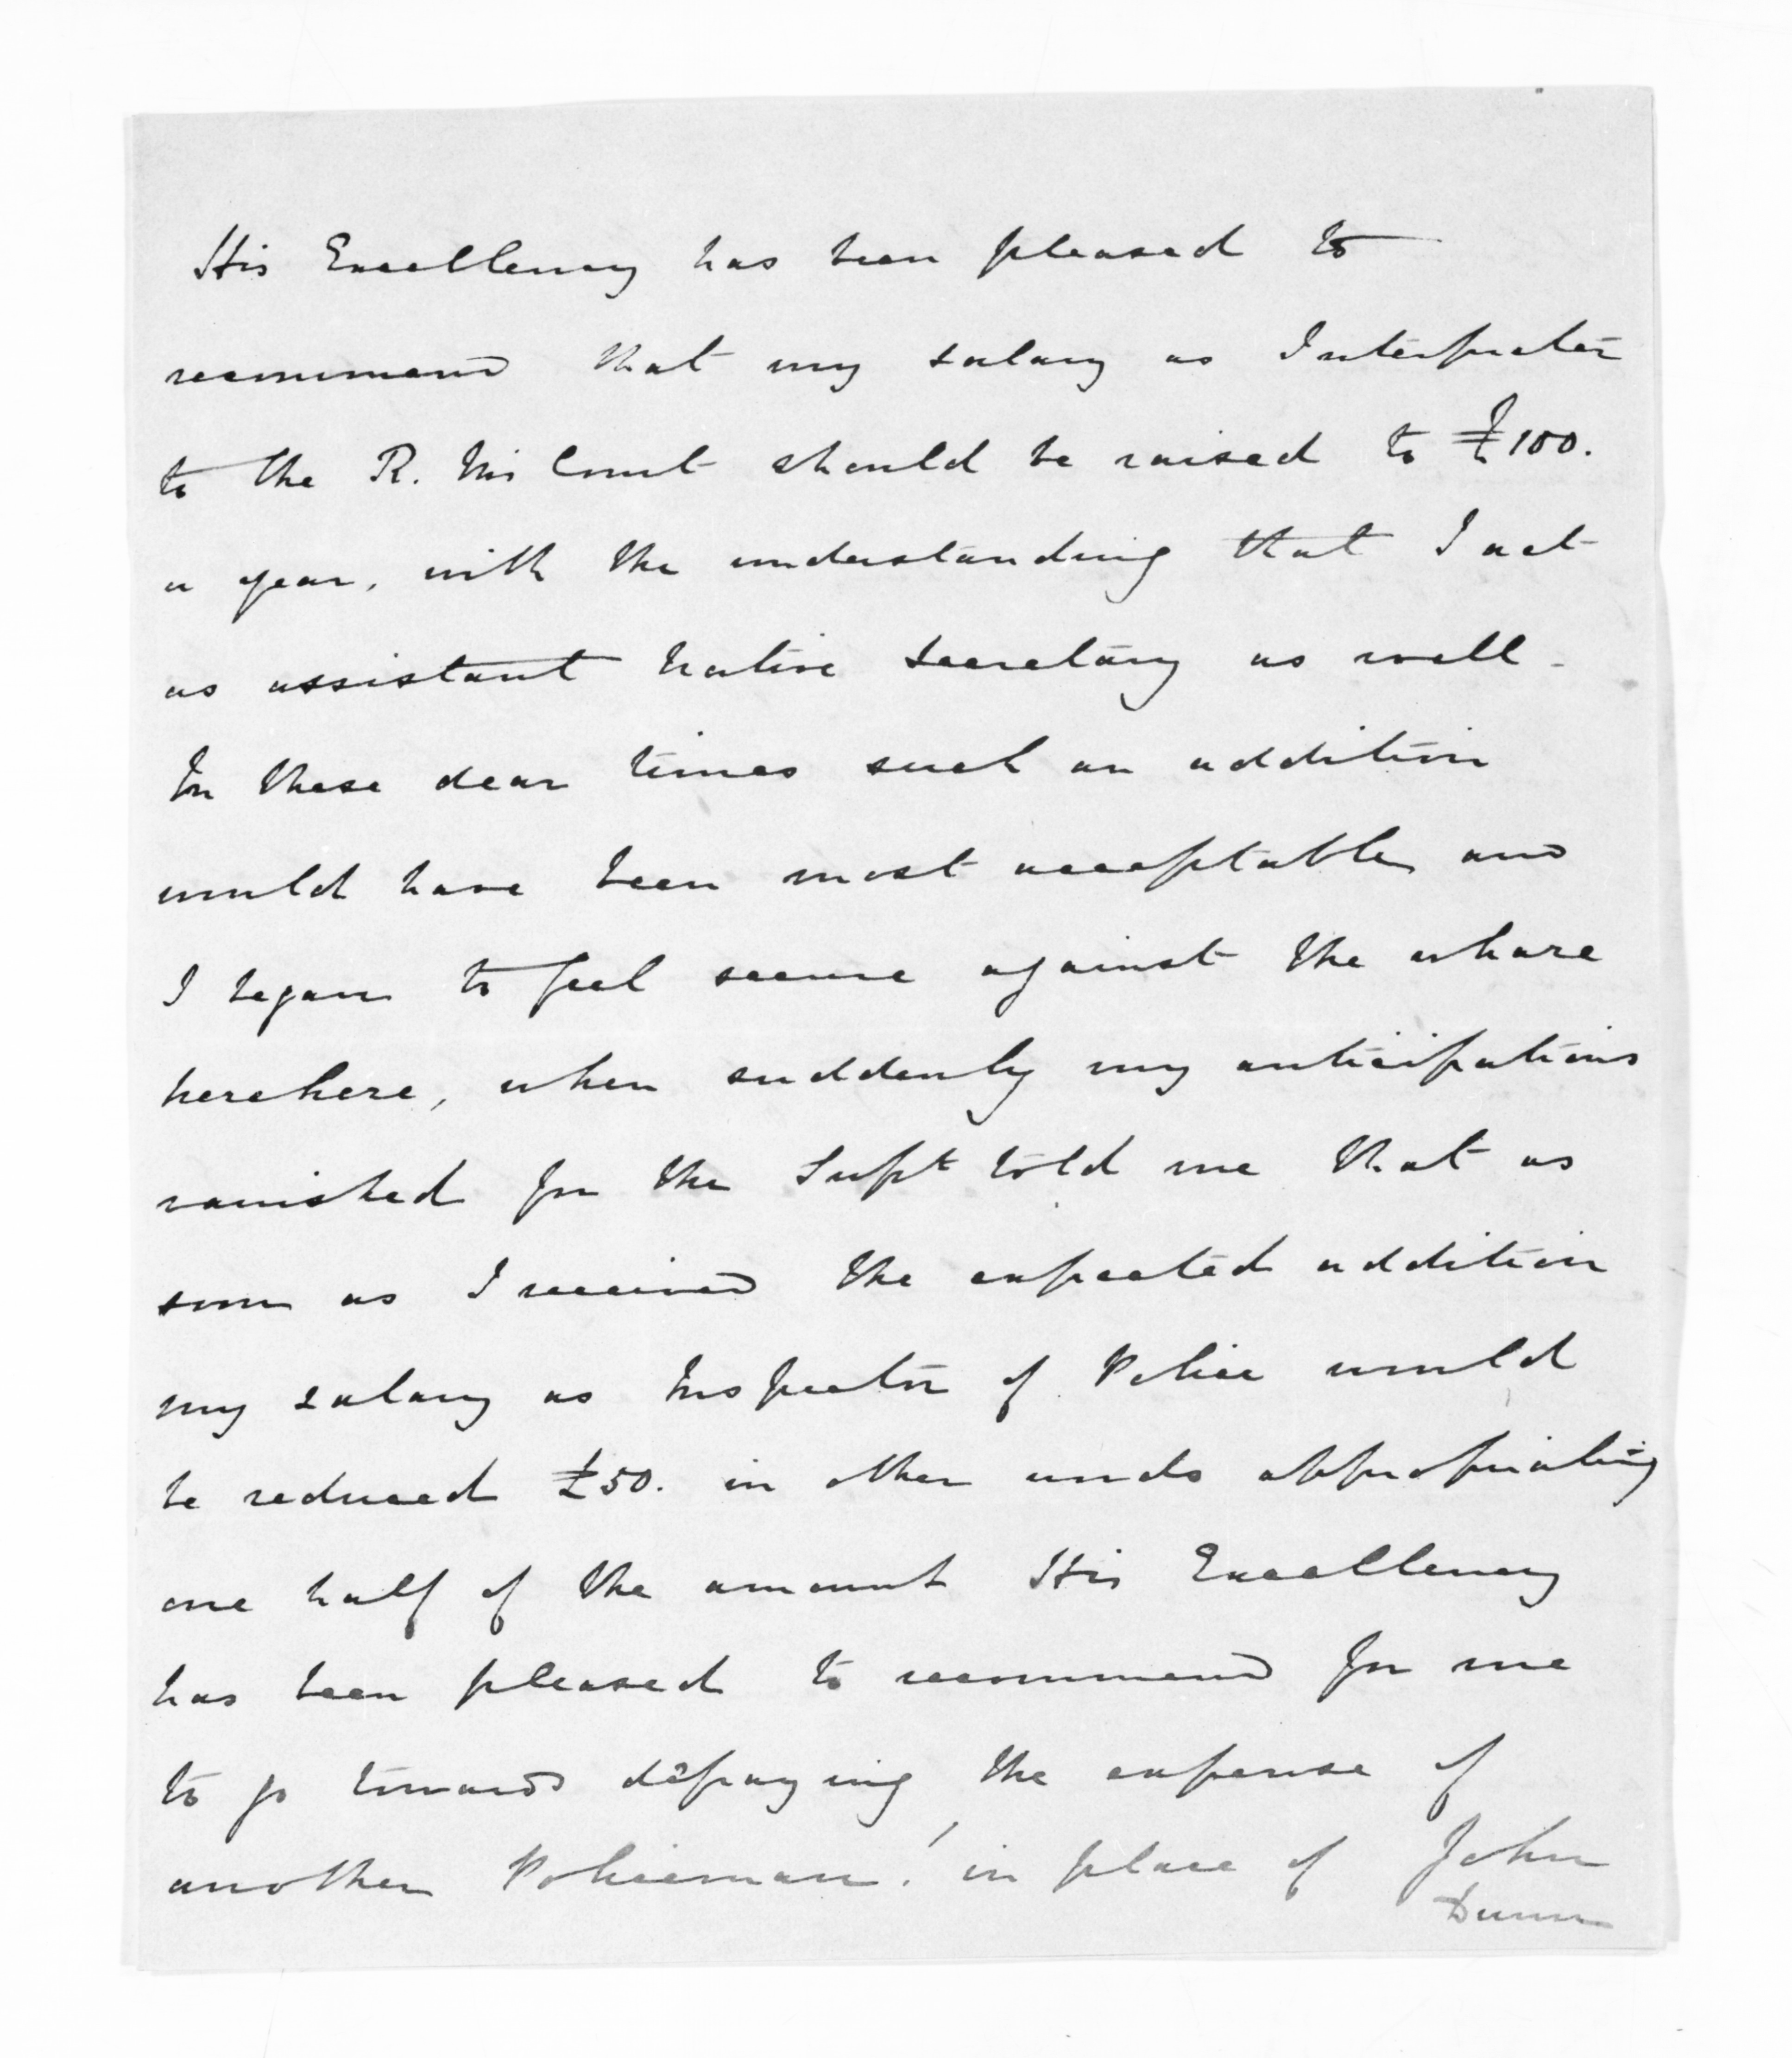 His Excellency has been pleased to
recommend that my salary as Interpreter
to the R. M's Court should be raised to £100.
a year, with the understanding that I act
as assistant Native Secretary as well.
In these dear times such an addition
would have been most acceptable and
I began to feel secure against the whare
herehere, when suddenly my anticipations
vanished for the Supt told me that as
soon as I received the expected addition
my salary as Inspector of Police would
be reduced £50. in other words appropriating
one half of the amount His Excellency
has been pleased to recommend for me
to go towards defraying the expense of
another Policeman! in place of John
Dunn